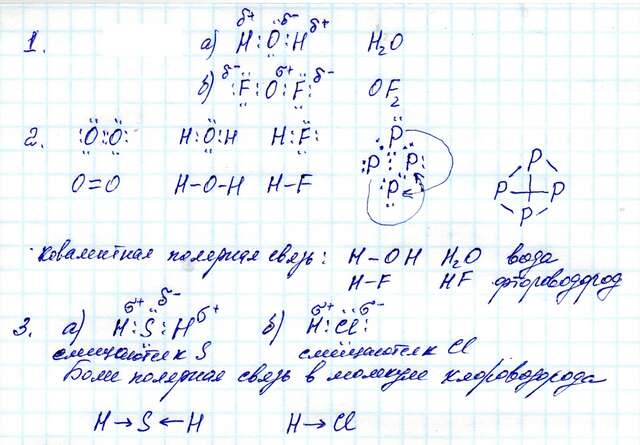 1. а) H : O : H H₂O
δ+ δ- δ+
б) : F : O : F : OF₂
δ- δ+ δ-
2. : O :: O : H : O : H H : F : P P P P
O=O H-O-H H-F P P P P
Ковалентная полярная связь: H-OH H₂O вода
H-F HF фтороводород
3. а) H : S : H б) H : Cl :
δ+ δ- δ+ δ+ δ-
смещаются к S смещаются к Cl
Более полярная связь в молекуле хлороводорода
H→S←H H→Cl